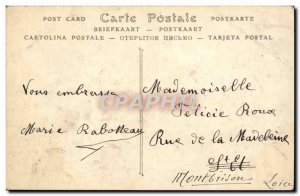 POST CARD Carte Postale POSTKARTE
BRIEFKAART — POSTKAART
CARTOLINA POSTALE — ОТКРЫТОЕ ПИСЬМО — TARJETA POSTAL
Vous embrasse
Marie Rabotteau
Mademoiselle
Félicie Roux
Rue de la Madeleine
St Et
Montbrison
Loire